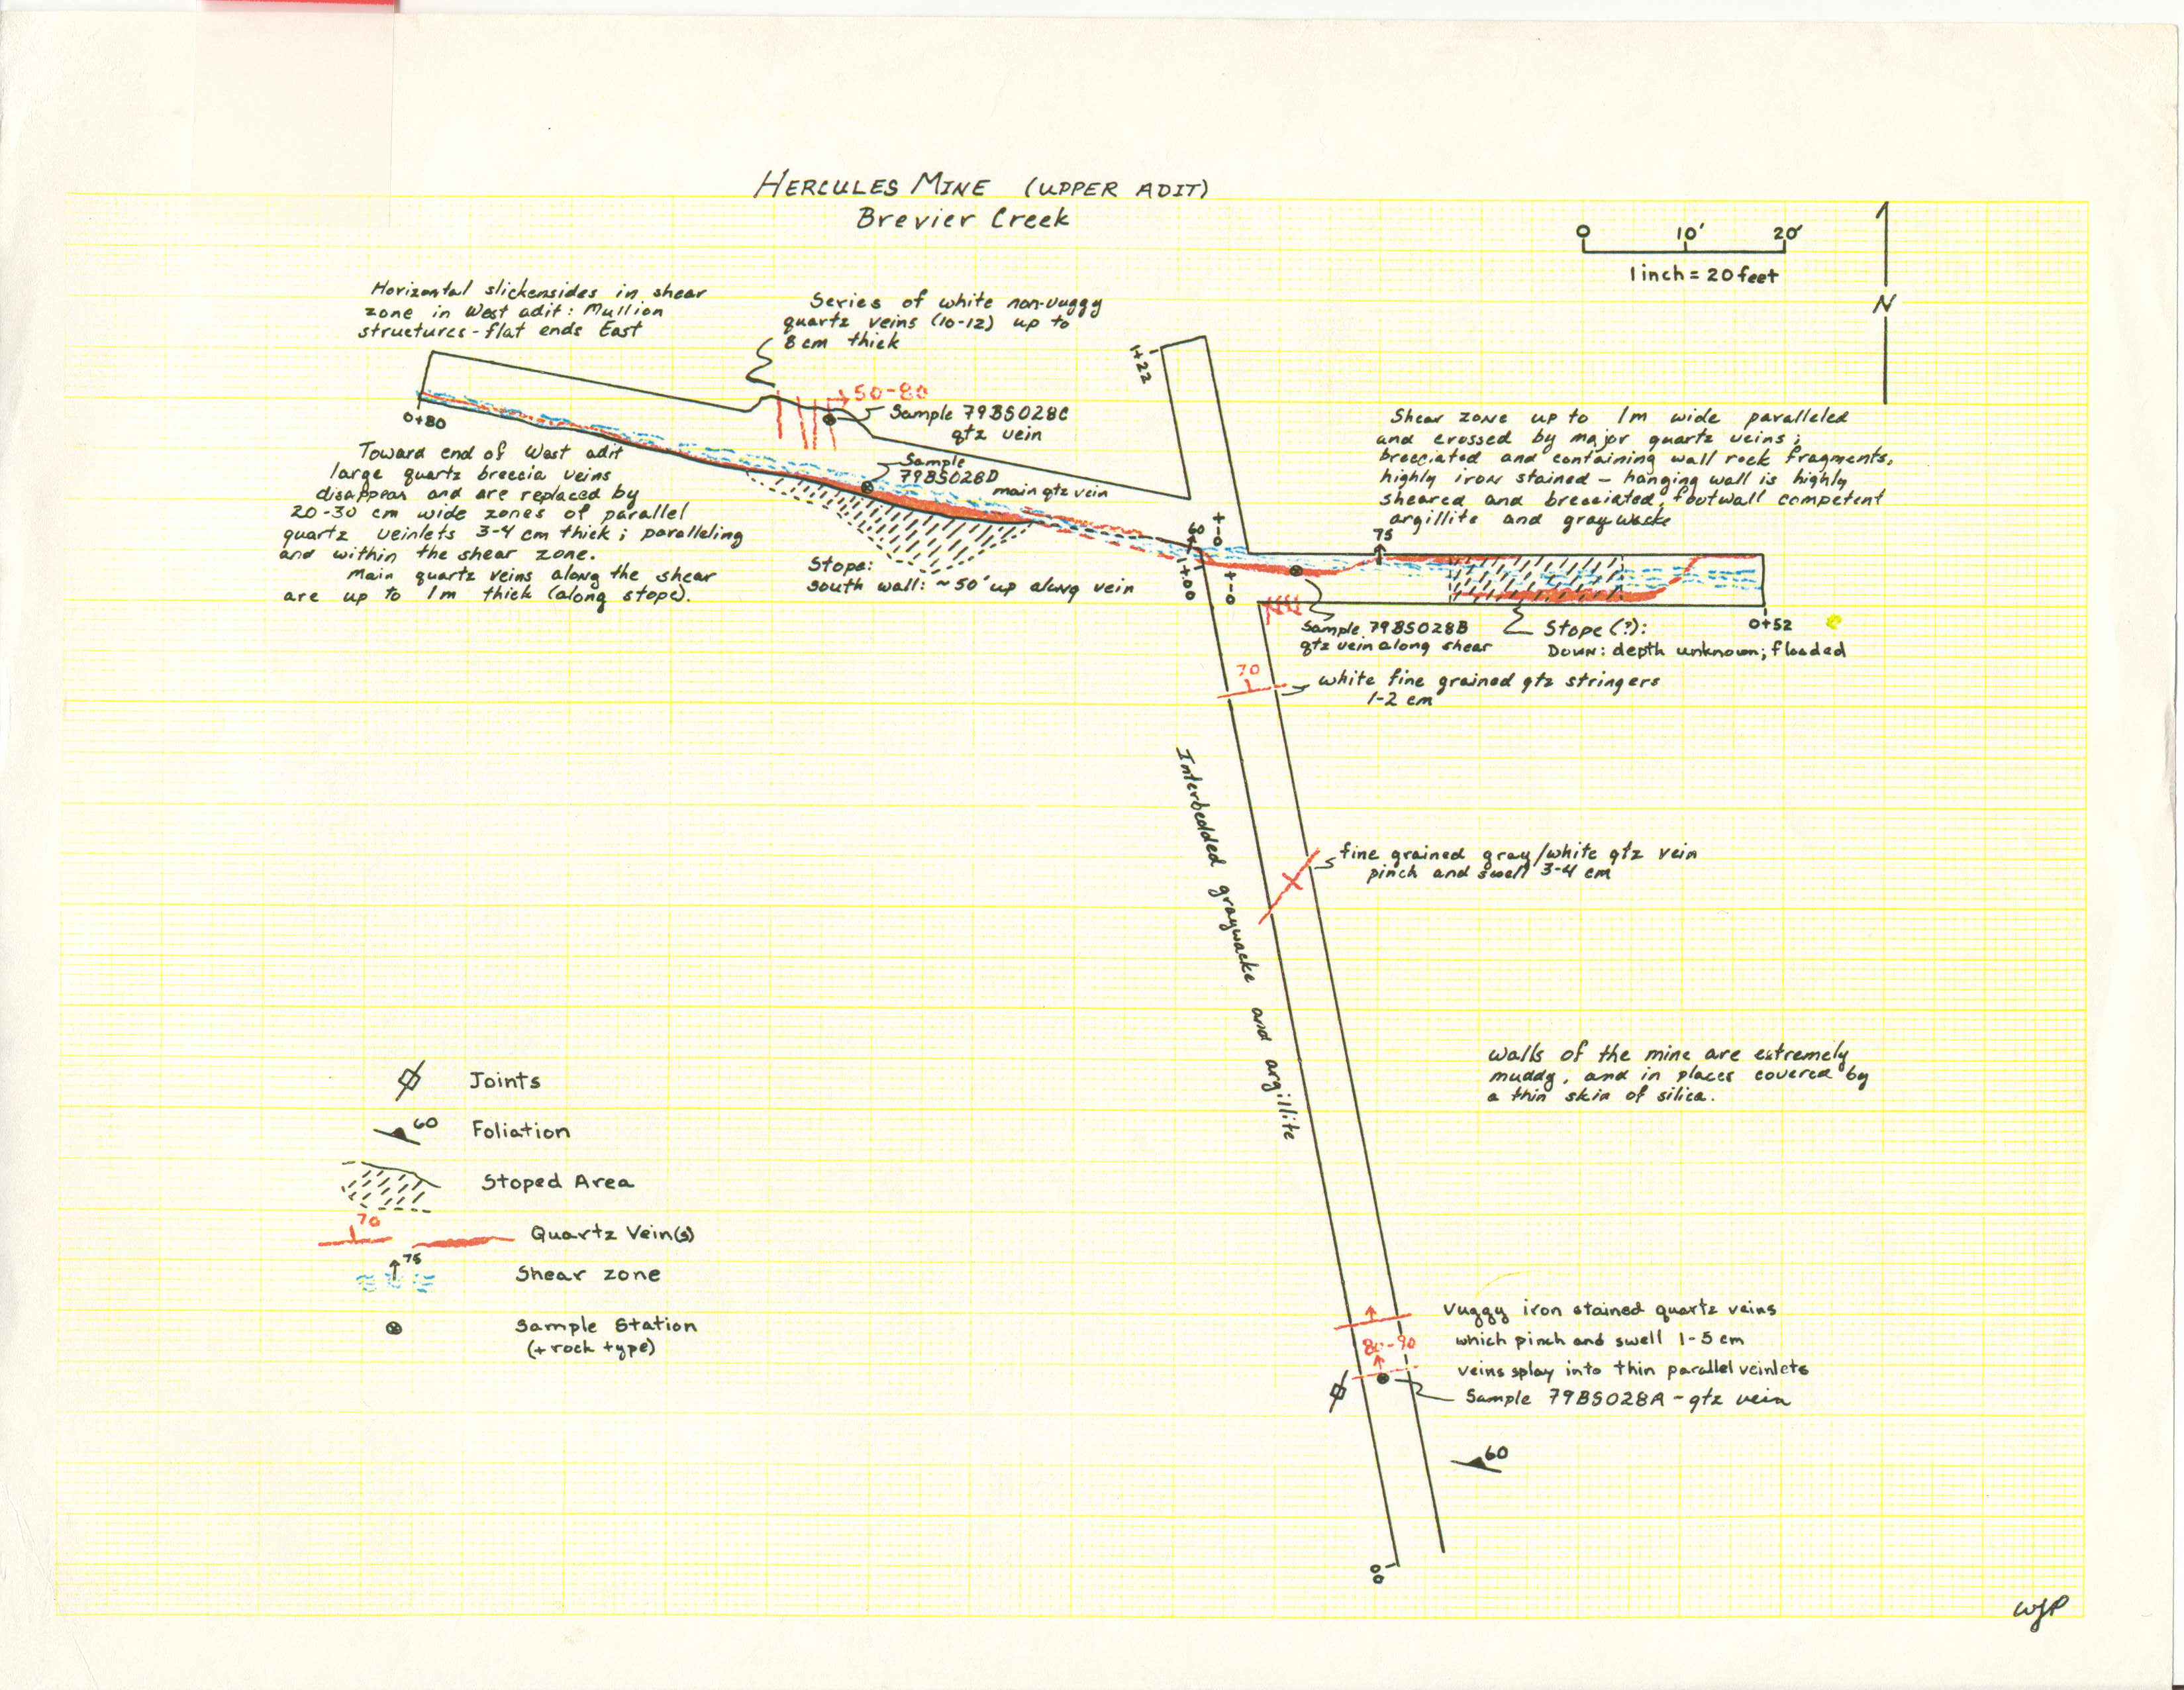 HERCULES MINE (UPPER ADIT)
Brevier Creek
0 10' 20'
1 inch = 20 feet
N
Horizontal slickensides in shear
zone in West adit: Mullion
structures - flat ends East
Series of white non-vuggy
quartz veins (10-12) up to
8 cm thick
1+22
50-80
Sample 79BS028C
qtz vein
0+80
Sample
79BS028D
main qtz vein
Toward end of West adit
large quartz breccia veins
disappear and are replaced by
20-30 cm wide zones of parallel
quartz veinlets 3-4 cm thick; paralleling
and within the shear zone.
Main quartz veins along the shear
are up to 1m thick (along stope).
Stope:
South wall: ~50' up along vein
60
1+00
Shear zone up to 1m wide paralleled
and crossed by major quartz veins;
brecciated and containing wall rock fragments,
highly iron stained - hanging wall is highly
sheared and brecciated, footwall competent
argillite and graywacke
75
0+52
Sample 79BS028B
qtz vein along shear
Stope (?):
DOWN: depth unknown; flooded
70
white fine grained qtz stringers
1-2 cm
Interbedded graywacke and argillite
fine grained gray/white qtz vein
pinch and swell 3-4 cm
walls of the mine are extremely
muddy, and in places covered by
a thin skin of silica.
Joints
60
Foliation
Stoped Area
70
Quartz Vein(s)
75
Shear zone
Sample Station
(+ rock type)
Vuggy iron stained quartz veins
which pinch and swell 1-5 cm
80-90
veins splay into thin parallel veinlets
Sample 79BS028A - qtz vein
60
WJP